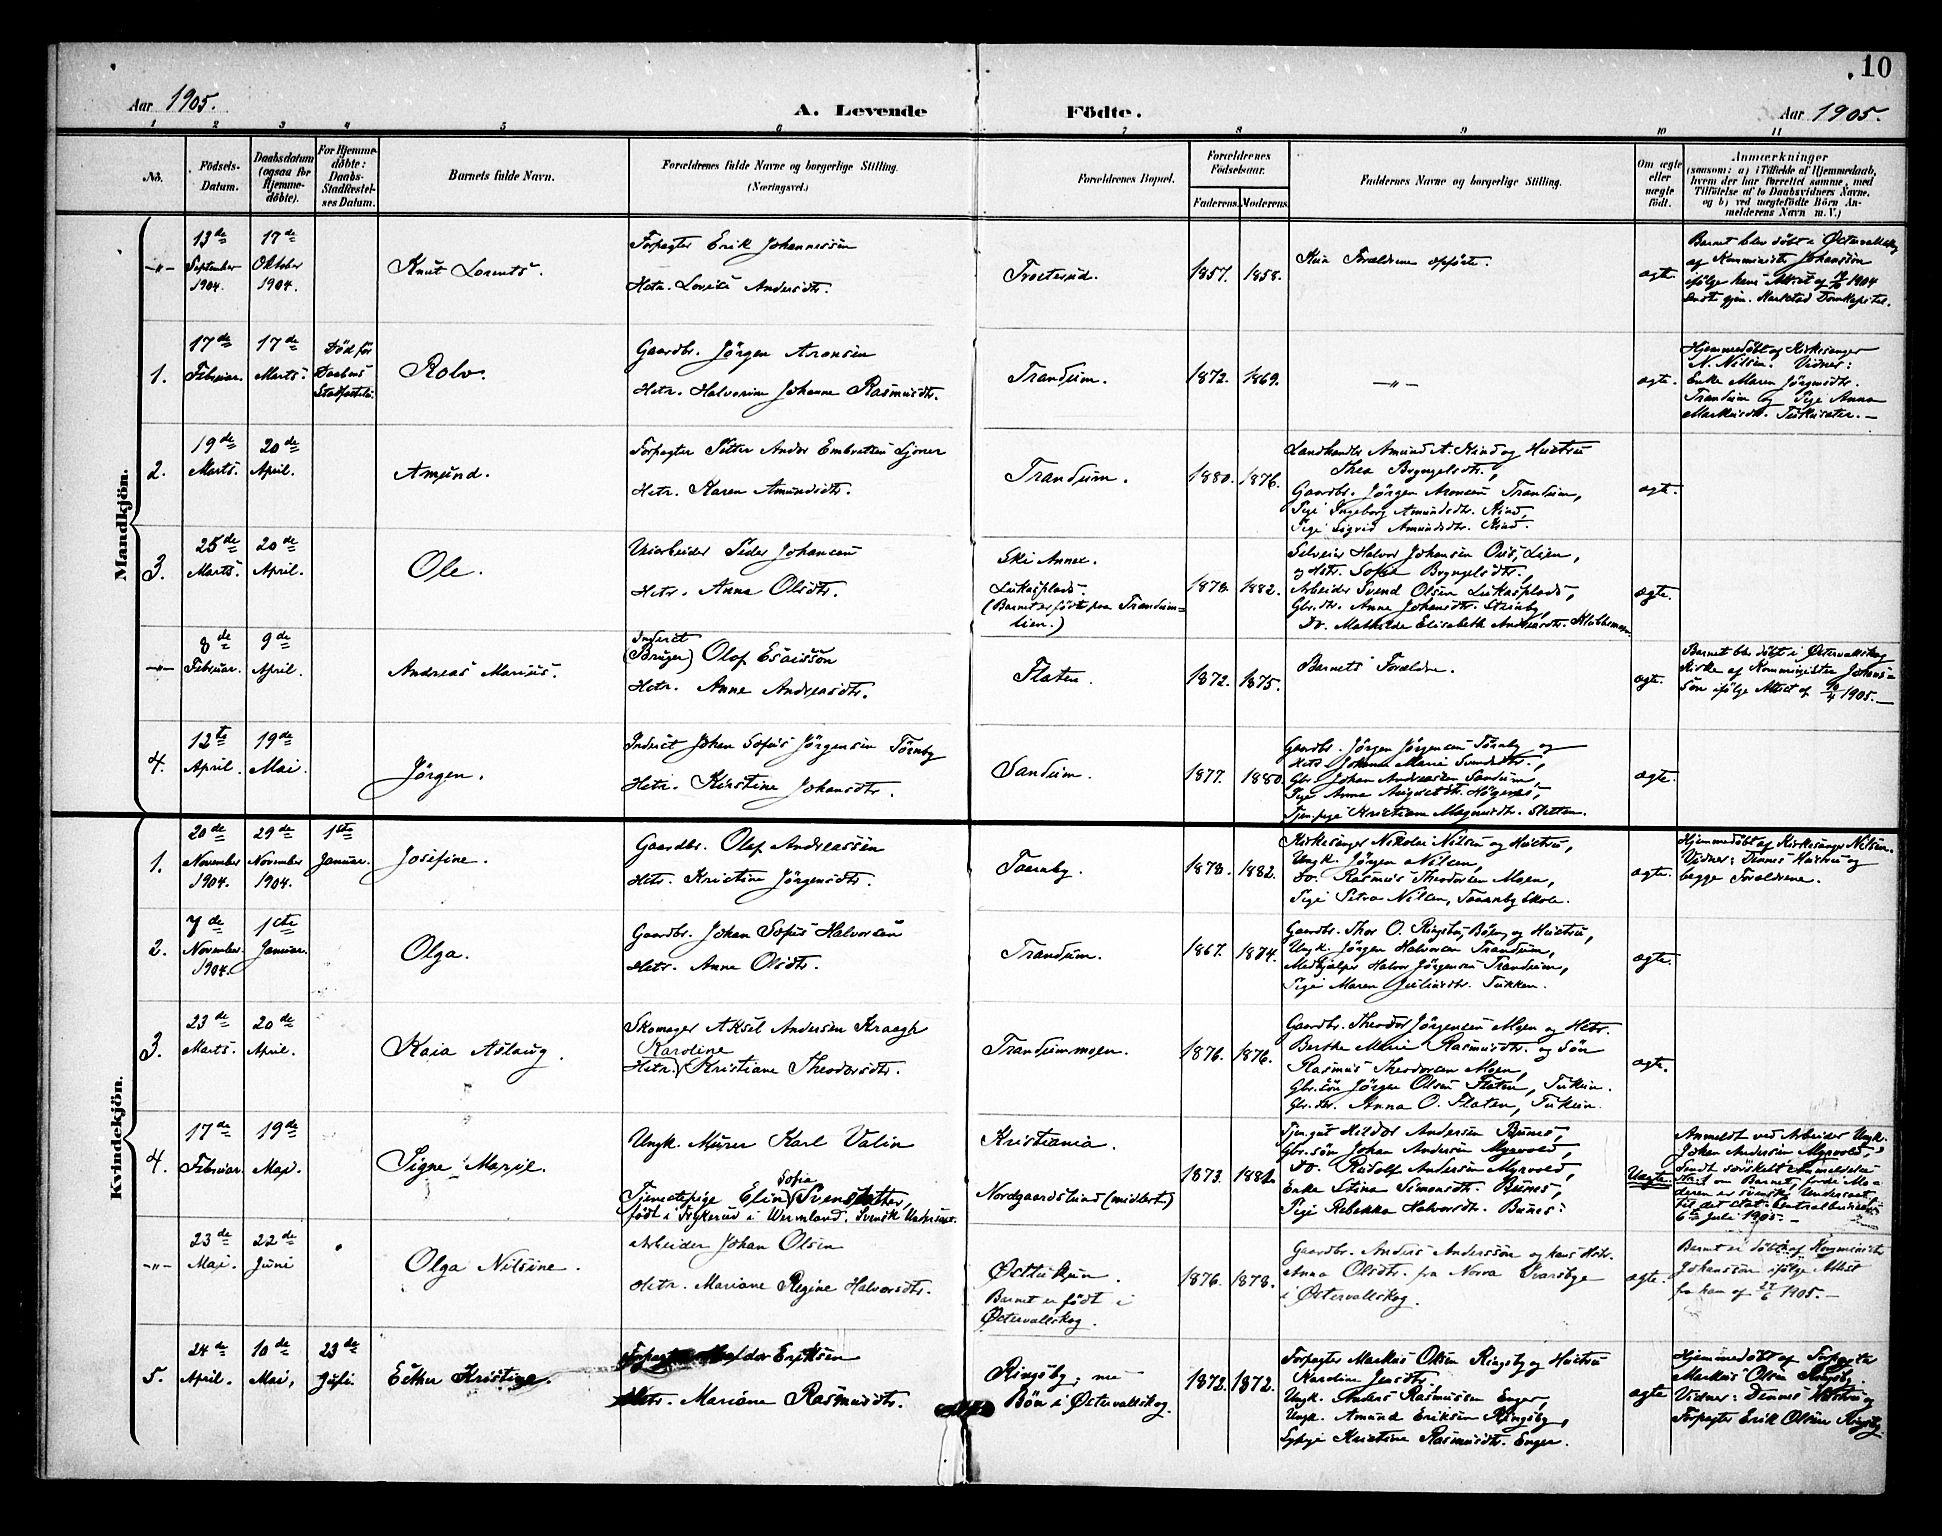 10
Aar 1905.
A. Levende Födte.
Aar 1905.
1 2 3 4 5 6 7 8 9 10 11
No.
Födsels-
Datum.
Daabsdatum
(ogsaa for
Hjemme-
döbte).
For Hjemme-
döbte:
Daabs-
Stadfæstel-
ses Datum.
Barnets fulde Navn.
Forældrenes fulde Navne og borgerlige Stilling.
(Næringsvei.)
Forældrenes Bopæl.
Forældrenes
Födselsaar.
Faderens. Moderens.
Faddernes Navne og borgerlige Stilling.
Om ægte
eller
uægte
født.
Anmærkninger
(saasom: a) i Tilfælde af Hjemmedaab,
hvem der har forrettet samme, med
Tilföielse af to Daabsvidners Navne,
og b) ved uægtefödte Börn An-
melderens Navn m. V.)
Mandkjön.
-"-
13de
September
1904.
17de
Oktober
1904.
Knut Lorents.
Forpagter Erik Johannessen
Hstr. Lovise Andersdtr.
1857. 1858.
Kun Forældrene opførte.
ægte.
Barnet blev döbt i Østervallskog
af Komminister Johansson
ifølge hans Attest af 1904
Karlstad Domkapitel.
1.
17de
Februar.
17de
Marts.
Död før
Daabens
Stadfæstelse.
Rolv.
Gaardbr. Jörgen Aronsen
Hstr. Halvorine Johanne Rasmusdtr.
Trandum.
1872. 1869.
-"-
ægte.
Hjemmedöbt af Kirkesanger
N. Nilsen. Vidner:
Enke Maren Jörgensdtr.
Trandum og Pige Anna
Markusdtr.
2.
19de
Marts.
20de
April.
Amund.
Forpagter Petter Andor Embretsen
Hstr. Karen Amundsdtr.
Trandum.
1880. 1876.
Landhandler Amund A. Kind og Hustru
Thea Bryngelsdtr.,
Gaardbr. Jörgen Aronsen Trandum,
Pige Ingeborg Amundsdtr. Kind,
Pige Sigrid Amundsdtr. Kind.
ægte.
3.
25de
Marts.
20de
April.
Ole.
Peder Johansen
Hstr. Anna Olsdtr.
Ski Annex.
Lukasplads.
(Barnet er födt paa Trandum-
lien.)
1878. 1882.
Selveier Halvor Johansen Lien,
og Hstr. Sofie Bryngelsdtr.,
Arbeider Svend Olsen Lukasplads,
Gbr.dtr. Anne Johansdtr. Steinby,
Do. Mathilde Elisabeth Andreasdtr.
ægte.
-"-
8de
Februar.
9de
April.
Andreas Marius.
Inderst
(Bruger) Olof Esaisson
Hstr. Anne Andreasdtr.
Flaten.
1872. 1875.
Barnets Forældre.
ægte.
Barnet blev döbt i Østervallskog
Kirke af Komminister Johans-
son ifölge Attest af 1905.
4.
12te
April.
19de
Mai.
Jörgen.
Inderst Johan Sofus Jörgensen Törnby
Hstr. Kirstine Johansdtr.
Sandum.
1877. 1880.
Gaardbr. Jörgen Jörgensen Törnby og
Hstr. Johanne Marie Svendsdtr.,
Gbr. Johan Andreassen Sandum,
Pige Anna Högenes,
Tjen.pige Kristiane Magnusdtr. Sletten.
ægte.
Kvindekjön.
1.
20de
November
1904.
29de
November
1904.
1ste
Januar.
Josefine.
Gaardbr. Olof Andreassen
Hstr. Kristine Jörgensdtr.
Taarnby.
1878. 1882.
Kirkesanger Nikolai Nilsen og Hustru,
Ungk. Jörgen Nilsen,
Do. Rasmus Theodorsen Moen,
Pige Petra Nilsen, Taarnby Skole.
ægte.
Hjemmedöbt af Kirkesanger Nilsen.
Vidner: Dennes Hustru og
begge Forældrene.
2.
7de
November
1904.
1ste
Januar.
Olga.
Gaardbr. Johan Sofus Halvorsen
Hstr. Anne Olsdtr.
Trandum.
1867. 1874.
Gaardbr. Thor O. Ringsby Böen og Hustru,
Ungk. Jörgen Halvorsen Trandum,
Medhjælper Halvor Jörgensen Trandum,
Pige Maren Juliusdtr. Tukken.
ægte.
3.
23de
Marts.
20de
April.
Kaia Aslaug.
Skomager Aksel Andersen Kraegh
Karoline
Hstr. Kristiane Theodorsdtr.
Trandummoen.
1876. 1876.
Gaardbr. Theodor Jörgensen Moen og Hstr.
Berthe Marie Rasmusdtr. og Sön
Rasmus Theodorsen Moen,
Gbr.sön Jörgen Olsen Flaten, Tukun.
Gbr.dtr. Anna O. Flaten, Tukun.
ægte.
4.
17de
Februar.
19de
Mai.
Signe Marie.
Ungk. Murer Karl Valin
Sofia
Tjenestepige Elin Svensdotter,
födt i Frykerud i Wermland. Svensk Undersaat.
Kristiania.
Nordgaardslund (midlert.)
1873. 1882.
Tjen.gut Hildor Andersen Bunes,
Gbr.sön Johan Andersen Myrvold,
Do. Rudolf Andersen Myrvold,
Enke Stina Simonsdtr. Bunes,
Pige Rebekka Halvorsdtr. Bunes.
Uægte.
Anmeldt ved Arbeider Ungk.
Johan Andersen Myrvold.
Sendt særskilt Anmeldelse
om Barnet, fordi Mo-
deren er svensk Undersaat,
til det stat. Centralbureau
6te Juli 1905.
-"-
23de
Mai.
22de
Juni
Olga Nilsine.
Arbeider Johan Olsen
Hstr. Mariane Regine Halvorsdtr.
Øst Tukun.
Barnet er födt i
Østervallskog.
1876. 1878.
Gaardbr. Anders Andersson og hans Hstr.
Anna Olsdtr. fra Norra Svarsbye
i Østervallskog.
ægte.
Barnet er döbt af Komminister
Johansson ifölge Attest
fra ham af 27/6 1905.
5.
24de
April.
10de
Mai,
23de
Juli.
Esther Kristine.
Forpagter Haldor Eriksen
Hstr. Mariane Rasmusdtr.
Ringsby, nu
Bön i Østervallskog.
1872. 1872.
Forpagter Markus Olsen Ringsby og Hustru
Karoline Jensdtr.
Ungk. Anders Rasmussen Enger,
Ungk. Amund Eriksen Ringsby,
Sypige Kristine Rasmusdtr. Enger.
ægte
Hjemmedöbt af Forpagter
Markus Olsen Ringsby.
Vidner: Dennes Hustru og
Forpagter Erik Olsen Ringsby